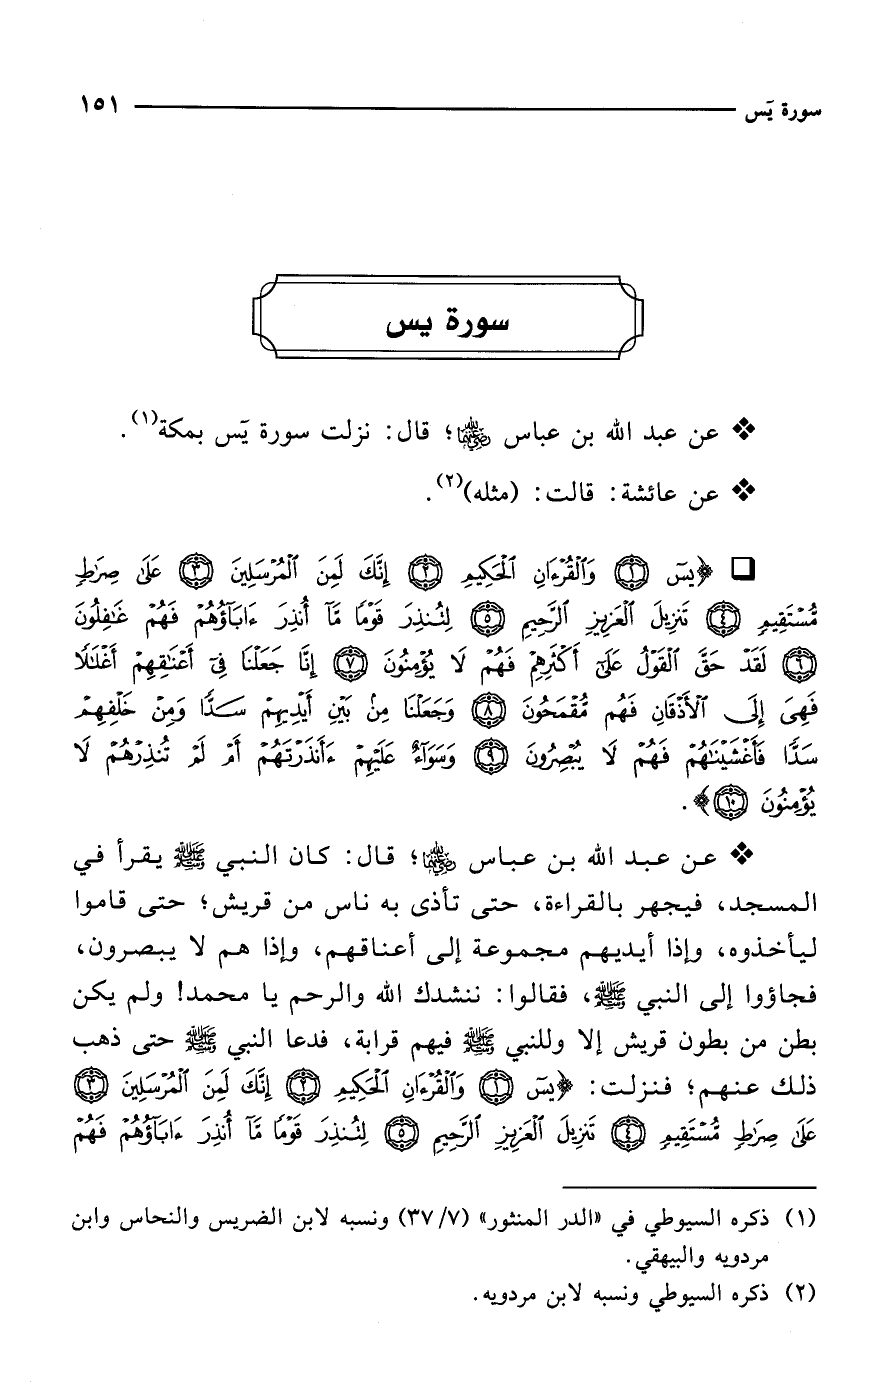 سورة يَس ١٥١
سورة يس
❖ عن عبد الله بن عباس رضي الله عنهما؛ قال: نزلت سورة يَس بمكة(١).
❖ عن عائشة: قالت: (مثله)(٢).
❑ ﴿يسٓ ۝١ وَالْقُرْءَانِ الْحَكِيمِ ۝٢ إِنَّكَ لَمِنَ الْمُرْسَلِينَ ۝٣ عَلَىٰ صِرَٰطٍ
مُّسْتَقِيمٍ ۝٤ تَنزِيلَ الْعَزِيزِ الرَّحِيمِ ۝٥ لِتُنذِرَ قَوْمًا مَّآ أُنذِرَ ءَابَآؤُهُمْ فَهُمْ غَٰفِلُونَ
۝٦ لَقَدْ حَقَّ الْقَوْلُ عَلَىٰٓ أَكْثَرِهِمْ فَهُمْ لَا يُؤْمِنُونَ ۝٧ إِنَّا جَعَلْنَا فِىٓ أَعْنَٰقِهِمْ أَغْلَٰلًا
فَهِىَ إِلَى الْأَذْقَانِ فَهُم مُّقْمَحُونَ ۝٨ وَجَعَلْنَا مِنۢ بَيْنِ أَيْدِيهِمْ سَدًّا وَمِنْ خَلْفِهِمْ
سَدًّا فَأَغْشَيْنَٰهُمْ فَهُمْ لَا يُبْصِرُونَ ۝٩ وَسَوَآءٌ عَلَيْهِمْ ءَأَنذَرْتَهُمْ أَمْ لَمْ تُنذِرْهُمْ لَا
يُؤْمِنُونَ ۝١٠﴾.
❖ عن عبد الله بن عباس رضي الله عنهما؛ قال: كان النبي ﷺ يقرأ في
المسجد، فيجهر بالقراءة، حتى تأذى به ناس من قريش؛ حتى قاموا
ليأخذوه، وإذا أيديهم مجموعة إلى أعناقهم، وإذا هم لا يبصرون،
فجاؤوا إلى النبي ﷺ، فقالوا: ننشدك الله والرحم يا محمد! ولم يكن
بطن من بطون قريش إلا وللنبي ﷺ فيهم قرابة، فدعا النبي ﷺ حتى ذهب
ذلك عنهم؛ فنزلت: ﴿يسٓ ۝١ وَالْقُرْءَانِ الْحَكِيمِ ۝٢ إِنَّكَ لَمِنَ الْمُرْسَلِينَ ۝٣
عَلَىٰ صِرَٰطٍ مُّسْتَقِيمٍ ۝٤ تَنزِيلَ الْعَزِيزِ الرَّحِيمِ ۝٥ لِتُنذِرَ قَوْمًا مَّآ أُنذِرَ ءَابَآؤُهُمْ فَهُمْ
(١) ذكره السيوطي في «الدر المنثور» (٧/ ٣٧) ونسبه لابن الضريس والنحاس وابن
مردويه والبيهقي.
(٢) ذكره السيوطي ونسبه لابن مردويه.